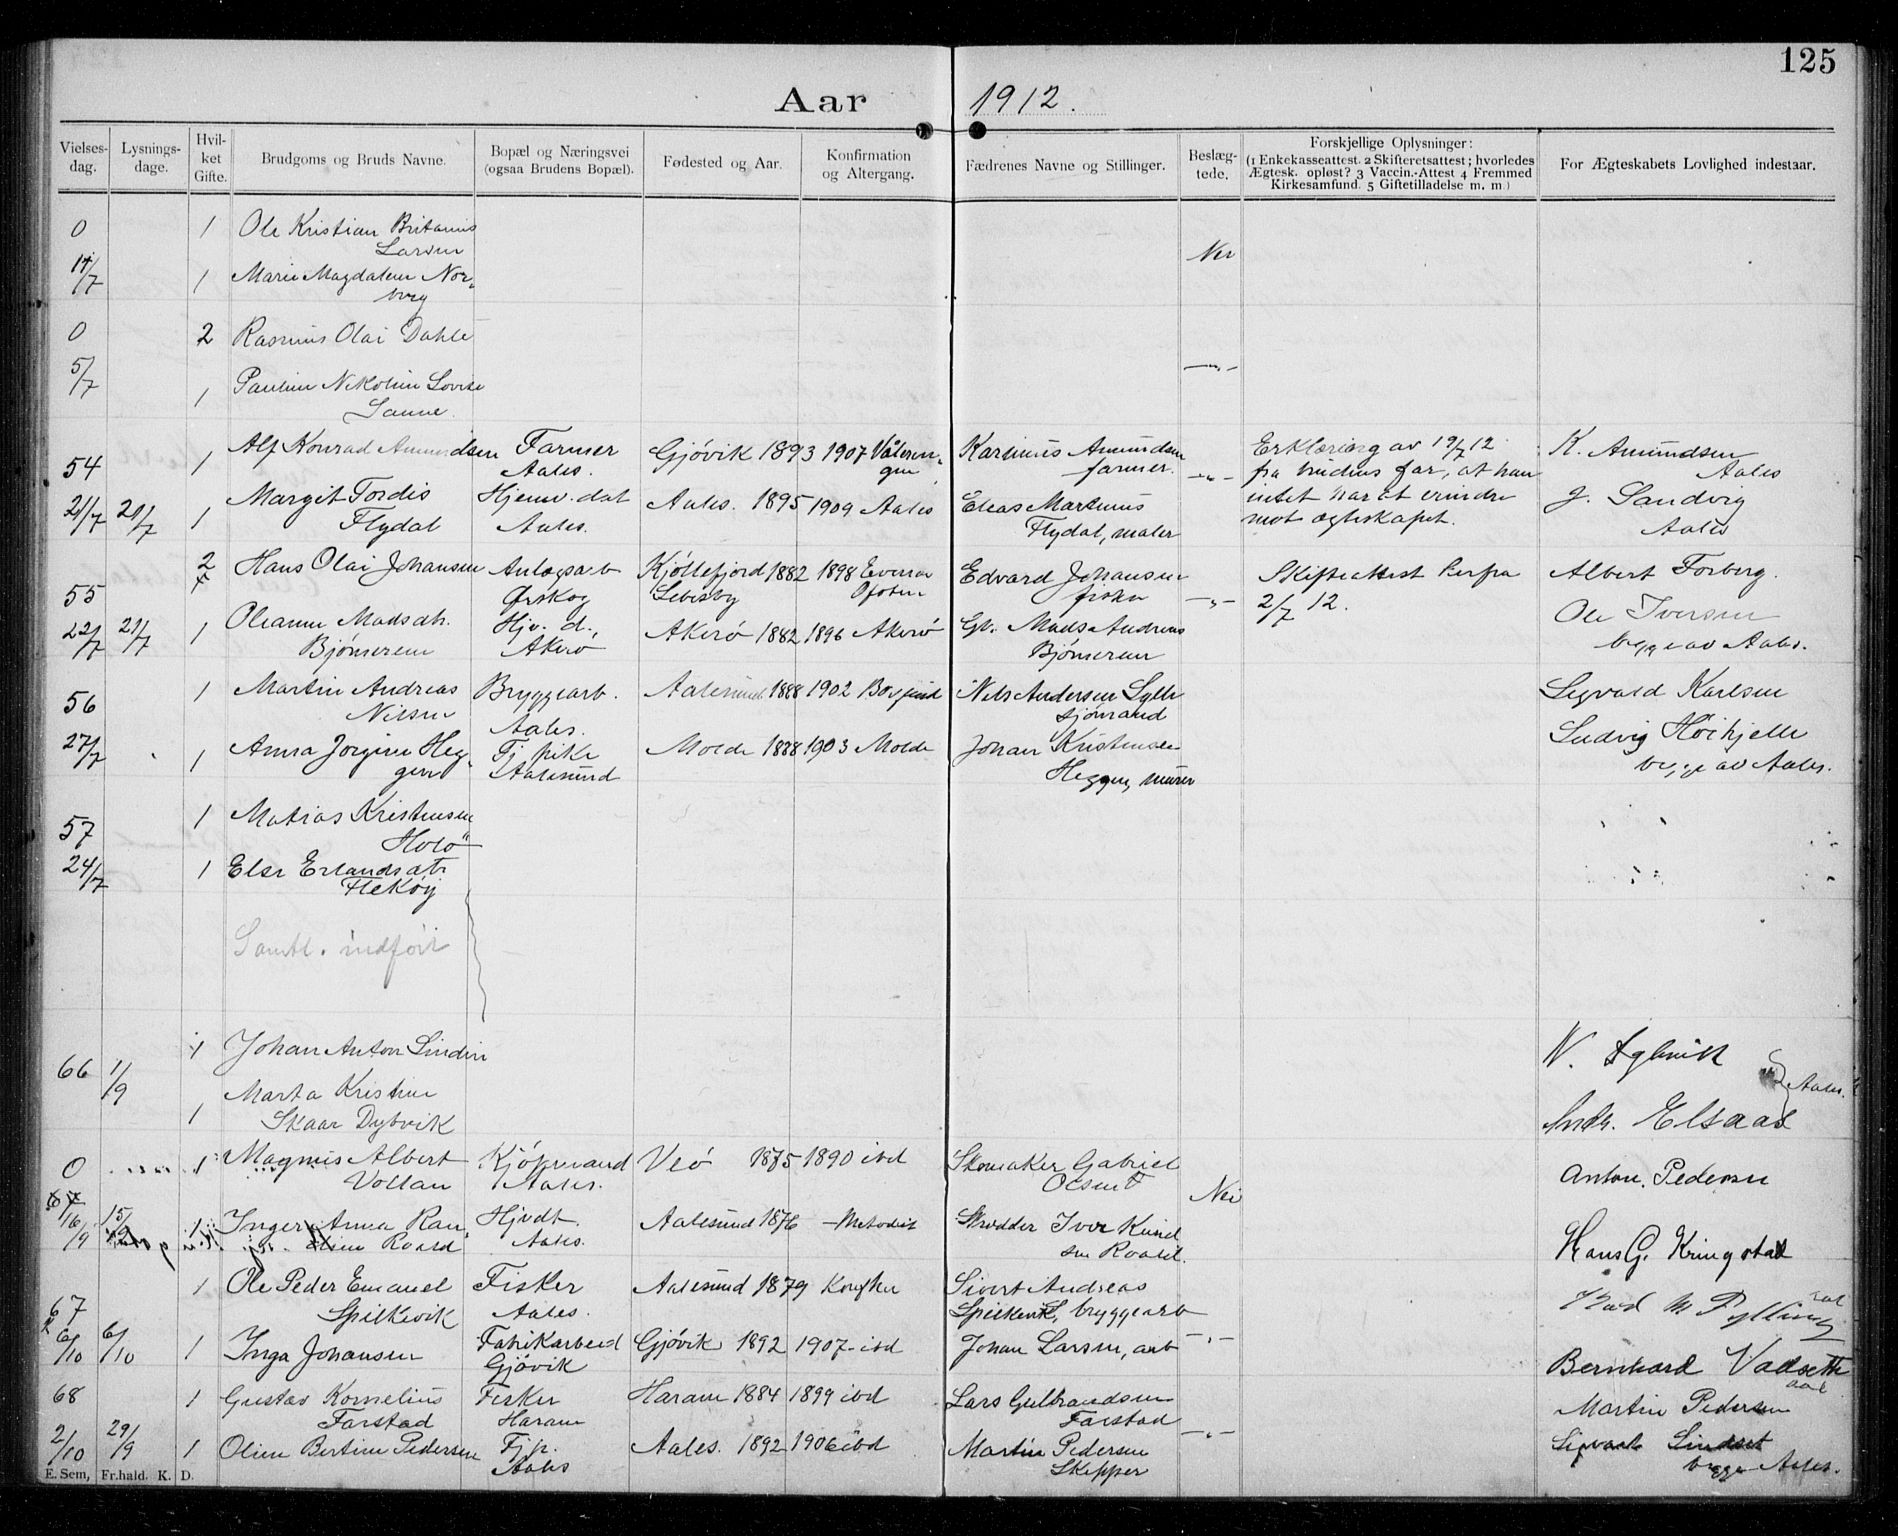 125
Aar 1912.
Vielses-dag.
Lysnings-dage.
Hvil-ket Gifte.
Brudgoms og Bruds Navne.
Bopæl og Næringsvei (ogsaa Brudens Bopæl).
Fødested og Aar.
Konfirmation og Altergang.
Fædrenes Navne og Stillinger.
Beslæg-tede.
Forskjellige Oplysninger:
(1 Enkekasseattest. 2 Skifteretsattest; hvorledes
Ægtesk. opløst? 3 Vaccin.-Attest 4 Fremmed
Kirkesamfund. 5 Giftetilladelse m. m)
For Ægteskabets Lovlighed indestaar.
0 1 Ole Kristian Britanius
Larsen
Nei
11/7 1 Marie Magdalene Nor-
berg
0 2 Rasmus Olai Dahle
5/7 1 Pauline Nikoline Lovise
Sanne.
—"—
54 1 Alf Konrad Amundsen Farmer Gjövik 1893 1907 Våleren- Karinius Amundsen Erklæring av 19/7 12 K. Amundsen
Aales. gen farmer. —"— fra brudens far, at han Aales
21/7 21/7 1 Margit Tordis Hjemv. dat Aales. 1895 1909 Aales Eleas Martinus intet har at erindre J. Sandvig
Flydal Aales. Flydal, maler mot ægteskapet. Aales
55 2 Hans Olai Johansen Anlegsarb Kjöllefjord 1882 1898 Evenes Edvard Johansen Skifteattest herfra Albert Forberg.
Ørskog Lebesby Ofoten fisker —"— 2/7 12.
22/7 21/7 1 Oleanne Madsdtr. Hjv. d., Akerö 1882 1896 Akerö Gb. Mads Andreas Ole Iversen
Bjönnerem Akerö Bjönnerem begge av Aales.
56 1 Martin Andreas Bryggearb. Aalesund 1888 1902 Borgund Nils Andersen Sylte Sigvald Karlsen
Nilsen Aales. sjömand
27/7 1 Anna Jörgine Heg- Tj. pike Molde 1888 1903 Molde Johan Kristensen Ludvig Höihjelle
gen Aalesund Heggen, murer begge av Aales.
57 1 Matias Kristensen
Holö
24/7 1 Else Erlandsdtr
Fleköy
Samtl. indfört
66 1/9 1 Johan Anton Lindin N. Dybvik
Marta Kristine Aales.
1 Skaar Dybvik Andr. Elsaas
0 1 Magnus Albert Kjöpmand Veö 1875 1890 ibd Skomaker Gabriel Anton. Pedersen
Vollan Aales. Olsen Nei
16/9 15/9 1 Inger Anna Rau- Hjvdt. Aalesund 1876 —Metodist Skrædder Iver Knud Hans G. Kringstad
line Roald Aales. sen Roald.
67 1 Ole Peder Emanuel Fisker Aalesund 1879 Konf her Sivert Andreas
Spilkevik Aales. Spilkevik, bryggearb
6/10 6/10 1 Inga Johansen Fabrikarbeid Gjövik 1892 1907 - ibd Johan Larsen, arb —"— Bernhard Vadseth
Gjövik Aal
68 1 Gustav Kornelius Fisker Haram 1884 1899 ibd Lars Gulbrandsen Martin Pedersen
Farstad Haram Farstad
2/10 29/9 1 Oline Bertine Pedersen Tjp. Aales. 1892 1906 ibd Martin Pedersen —"—
Aales Skipper begge Aales.
E. Sem, Fr.hald. K. D.